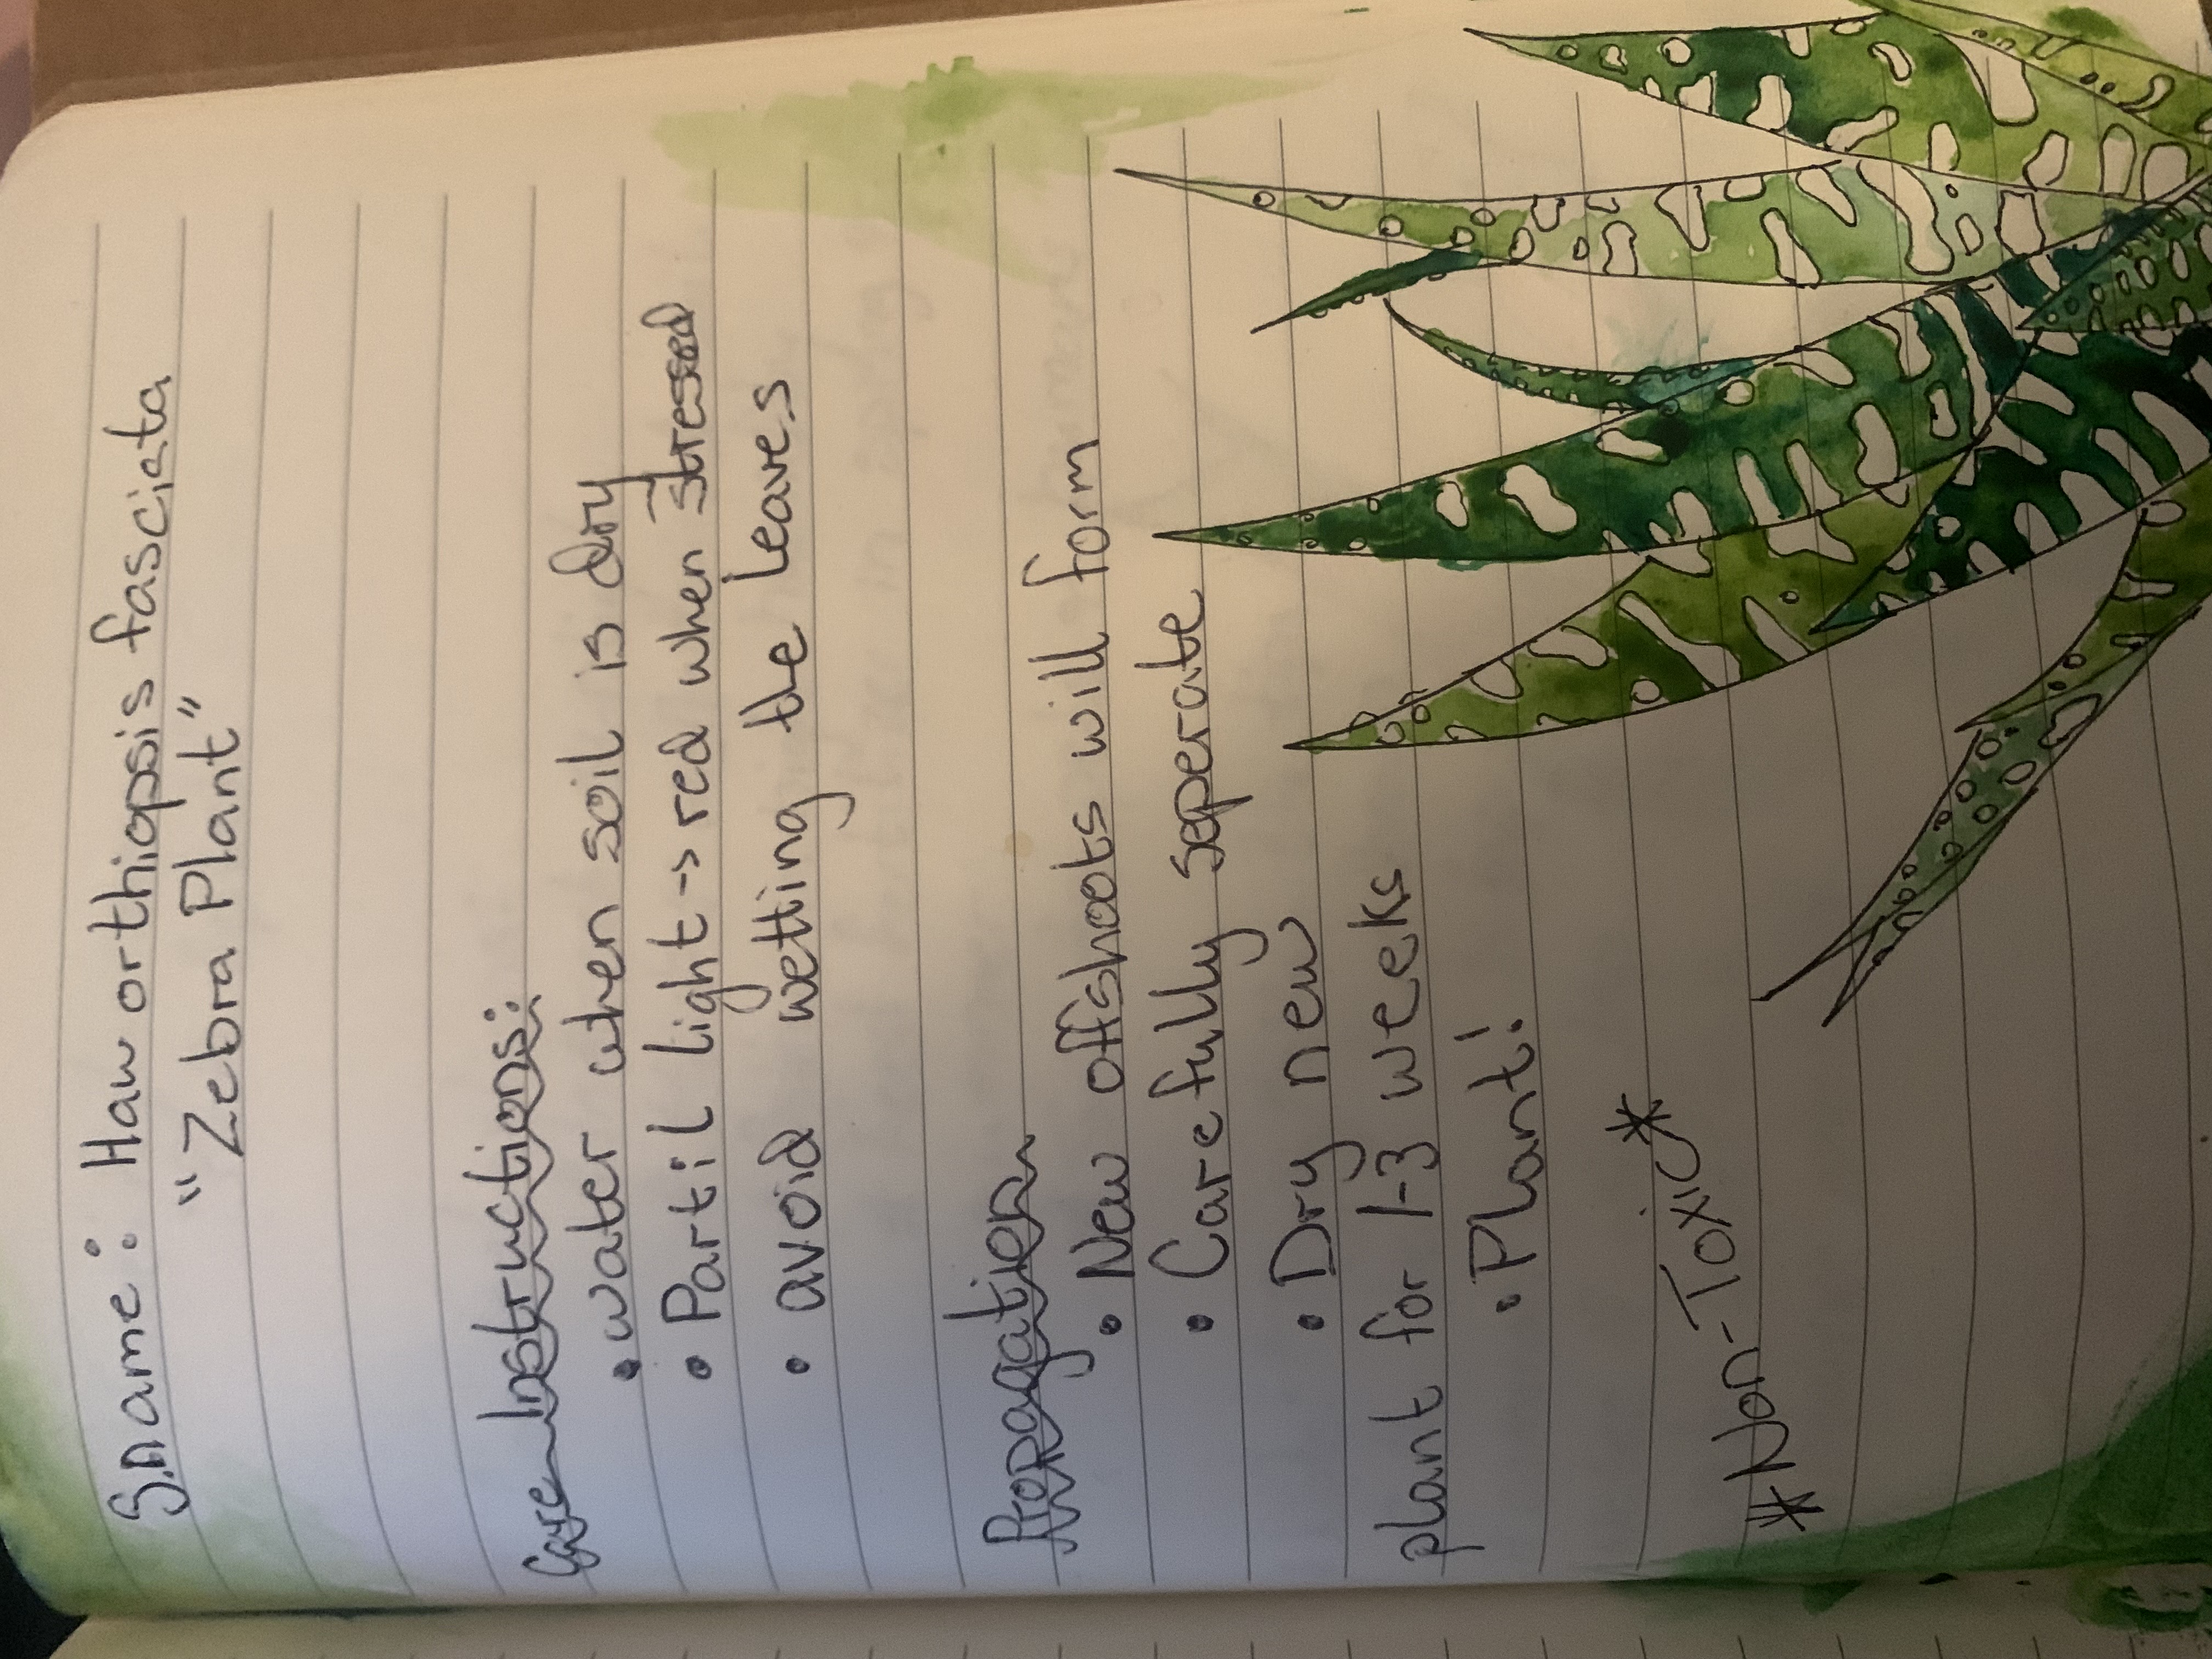 S.name: Haworthiopsis fasciata
"Zebra Plant"
Care Instructions:
• water when soil is dry
• Partil light -> red when stressed
• avoid wetting the leaves
Propagation
• New offshoots will form
• Carefully seperate
• Dry new
plant for 1-3 weeks
• Plant!
*Non-Toxic*